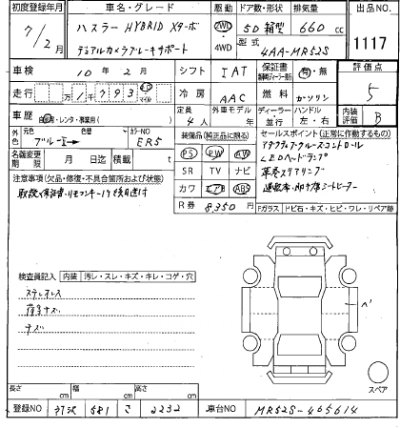 初度登録年月 車名・グレード 駆動 ドア数・形状 排気量 出品NO.
7/2月 ハスラー HYBRID Xターボ 2WD 5D 箱型 660cc
デュアルカメラブレーキサポート 4WD 型式 4AA-MR52S 1117
車検 10年2月 シフト IAT 保証書 有・無 評価点
走行 万1千793 冷房 AAC 燃料 ガソリン 5
車歴 レンタ・事業用( ) 定員 4人 外車モデル年 ディーラー・並行 ハンドル 左・右 内装評価 B
外色 元色 ブルーⅡ 色替 カラーNO ER5 装備品(純正品に限る) セールスポイント(正常に作動するもの)
名義変更期限 月 日迄 積載 t PS PW AW アダプティブクルーズコントロール
注意事項(欠品・修復・不具合箇所および状態) SR TV ナビ LEDヘッドランプ
カワ エアB ABS 革巻ステアリング
R券 8,350円 運転席・助手席シートヒーター
Fガラス トビ石・キズ・ヒビ・ワレ・リペア跡
検査員記入 内装 汚レ・スレ・キズ・キレ・コゲ・穴
キズ
長さ cm 幅 cm 高さ cm スペア
登録NO 581 さ 2232 車台NO MR52S-465614